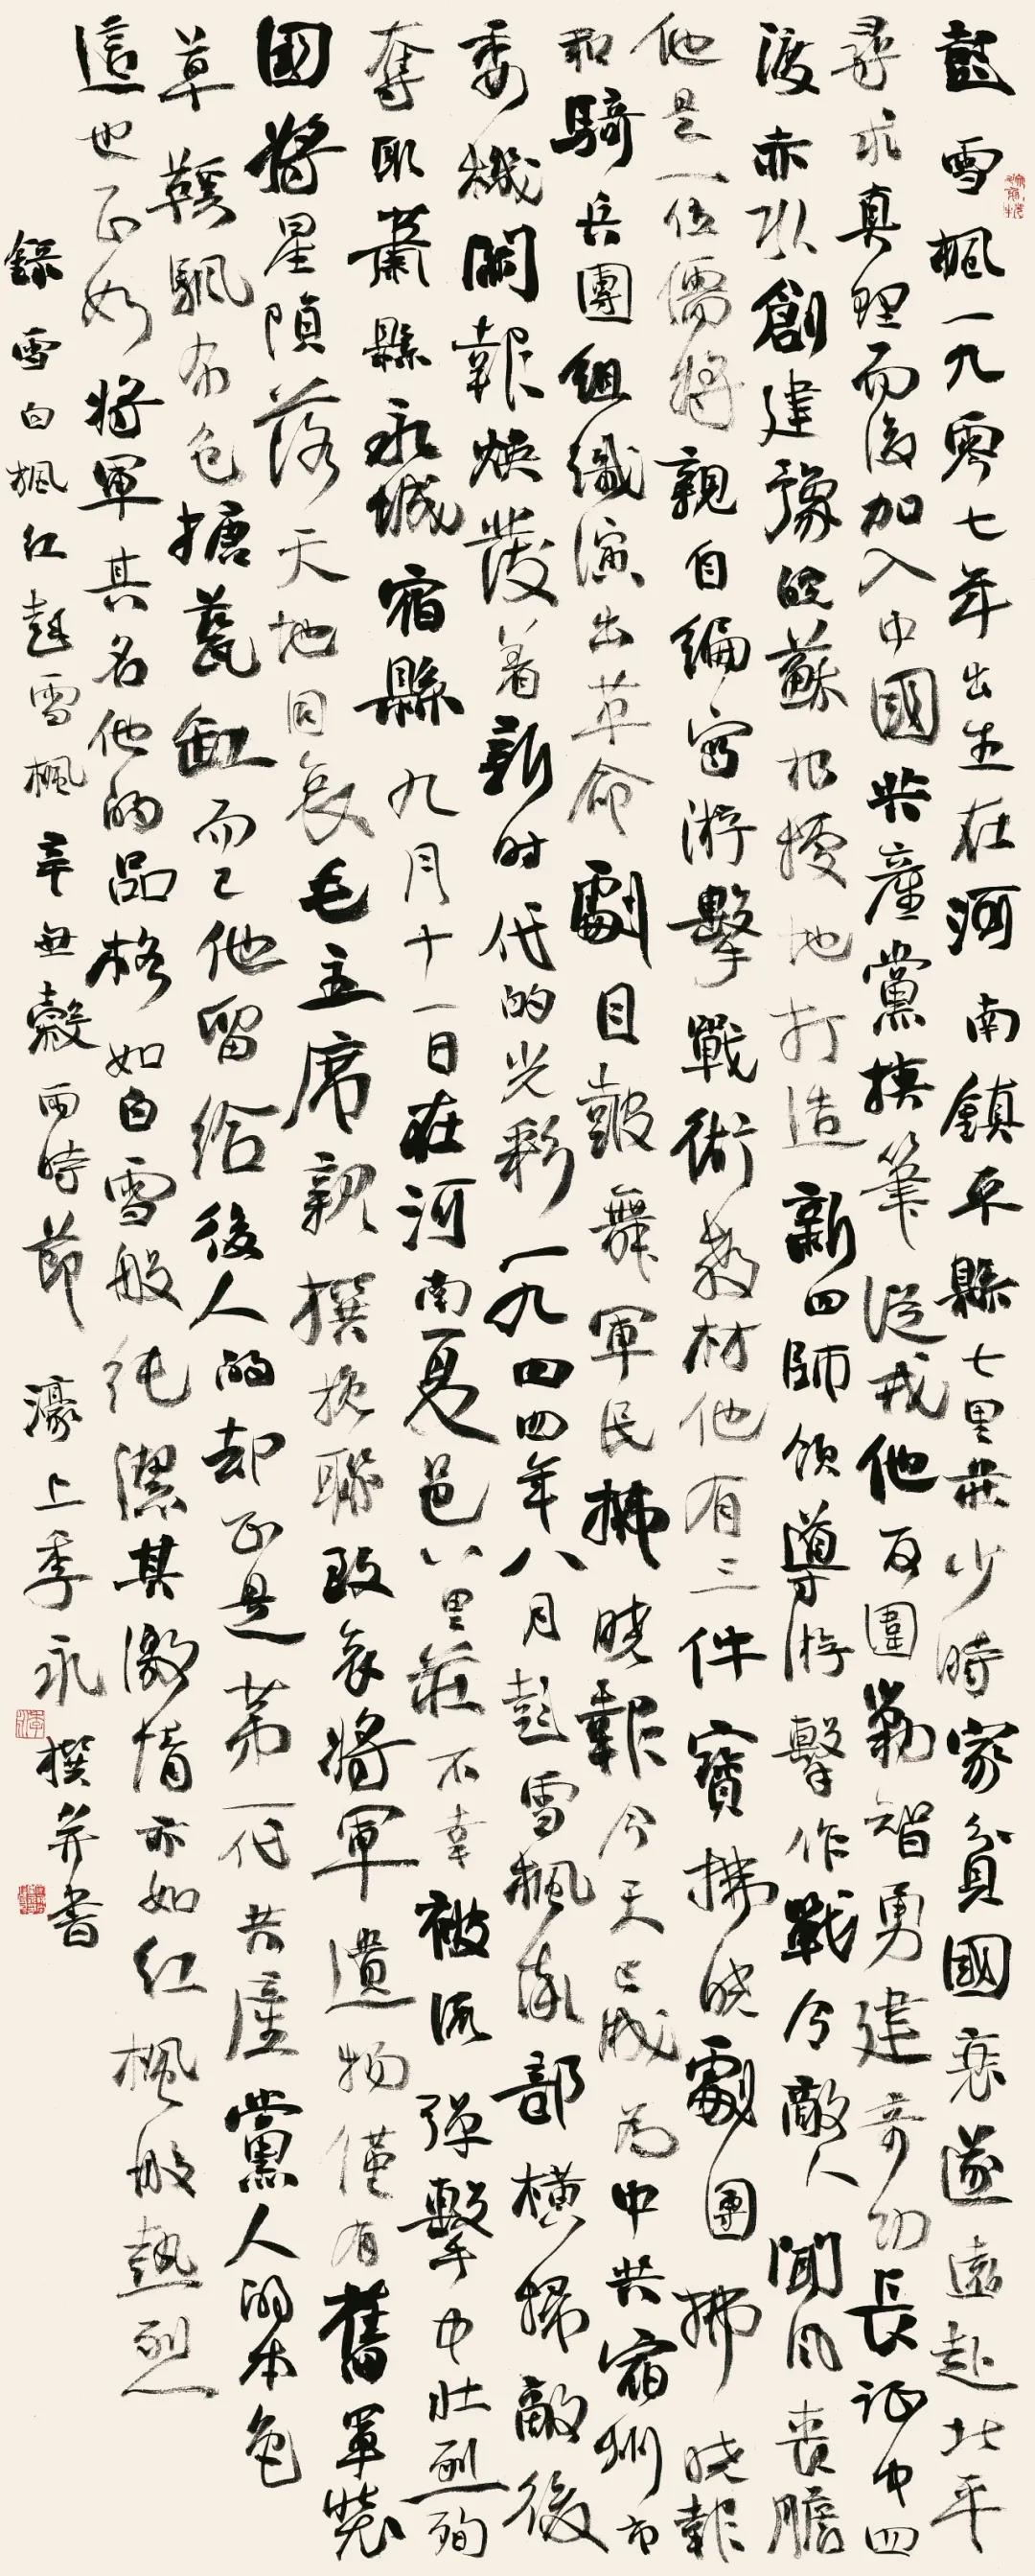 彭雪楓一九零七年出生在河南鎮平縣七里莊少時家貧國衰遂遠赴北平
尋求真理而後加入中國共產黨投筆從戎他反圍剿智勇建奇功長征中四
渡赤水創建豫皖蘇根據地打造新四師領導游擊作戰令敵人聞風喪膽
他是一位儒將親自編寫游擊戰術教材他有三件寶拂曉劇團拂曉報
和騎兵團組織演出革命劇目鼓舞軍民拂曉報今天已成為中共宿州市
委機關報煥發着新时代的光彩一九四四年八月彭雪楓率部橫掃敵後
奪取蕭縣永城宿縣九月十一日在河南夏邑八里莊不幸被流彈擊中壯烈殉
國將星隕落天地同哀毛主席親撰挽聯致哀將軍遺物僅有舊軍裝
草鞋飄布包搪瓷缸而已他留給後人的却正是第一代共產黨人的本色
這也正如將軍其名他的品格如白雪般純潔其激情亦如红楓般熱烈
錄雪白楓红彭雪楓辛丑穀雨時節濠上季永撰并書